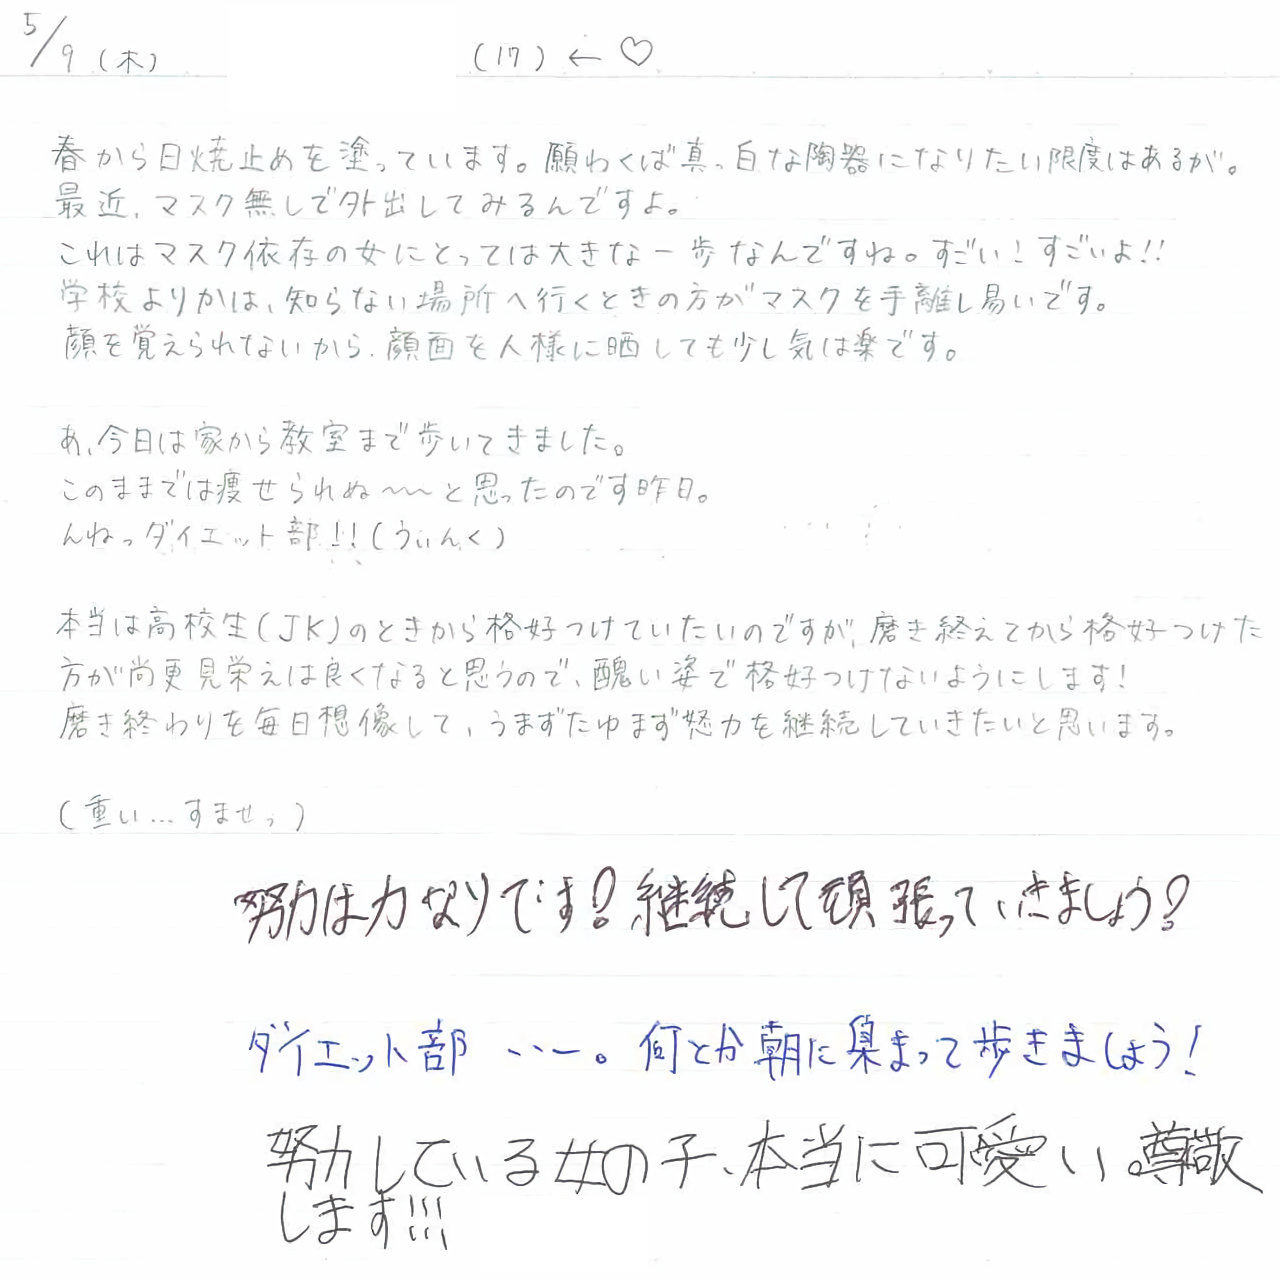 5/9(木) (17)←♡
春から日焼止めを塗っています。願わくば真っ白な陶器になりたい限度はあるが。
最近、マスク無しで外出してみるんですよ。
これはマスク依存の女にとっては大きな一歩なんですね。すごい!すごいよ!!
学校よりかは、知らない場所へ行くときの方がマスクを手離し易いです。
顔を覚えられないから、顔面を人様に晒しても少し気は楽です。
あ、今日は家から教室まで歩いてきました。
このままでは痩せられぬ〜〜と思ったのです昨日。
んねっダイエット部!!(うぃんく)
本当は高校生(JK)のときから格好つけていたいのですが、磨き終えてから格好つけた
方が尚更見栄えは良くなると思うので、醜い姿で格好つけないようにします!
磨き終わりを毎日想像して、うまずたゆまず努力を継続していきたいと思います。
(重い…すませっ)
努力は力なりです!継続して頑張っていきましょう?
ダイエット部 、、ー。何とか朝に集まって歩きましょう!
努力している女の子、本当に可愛い。尊敬
します!!!